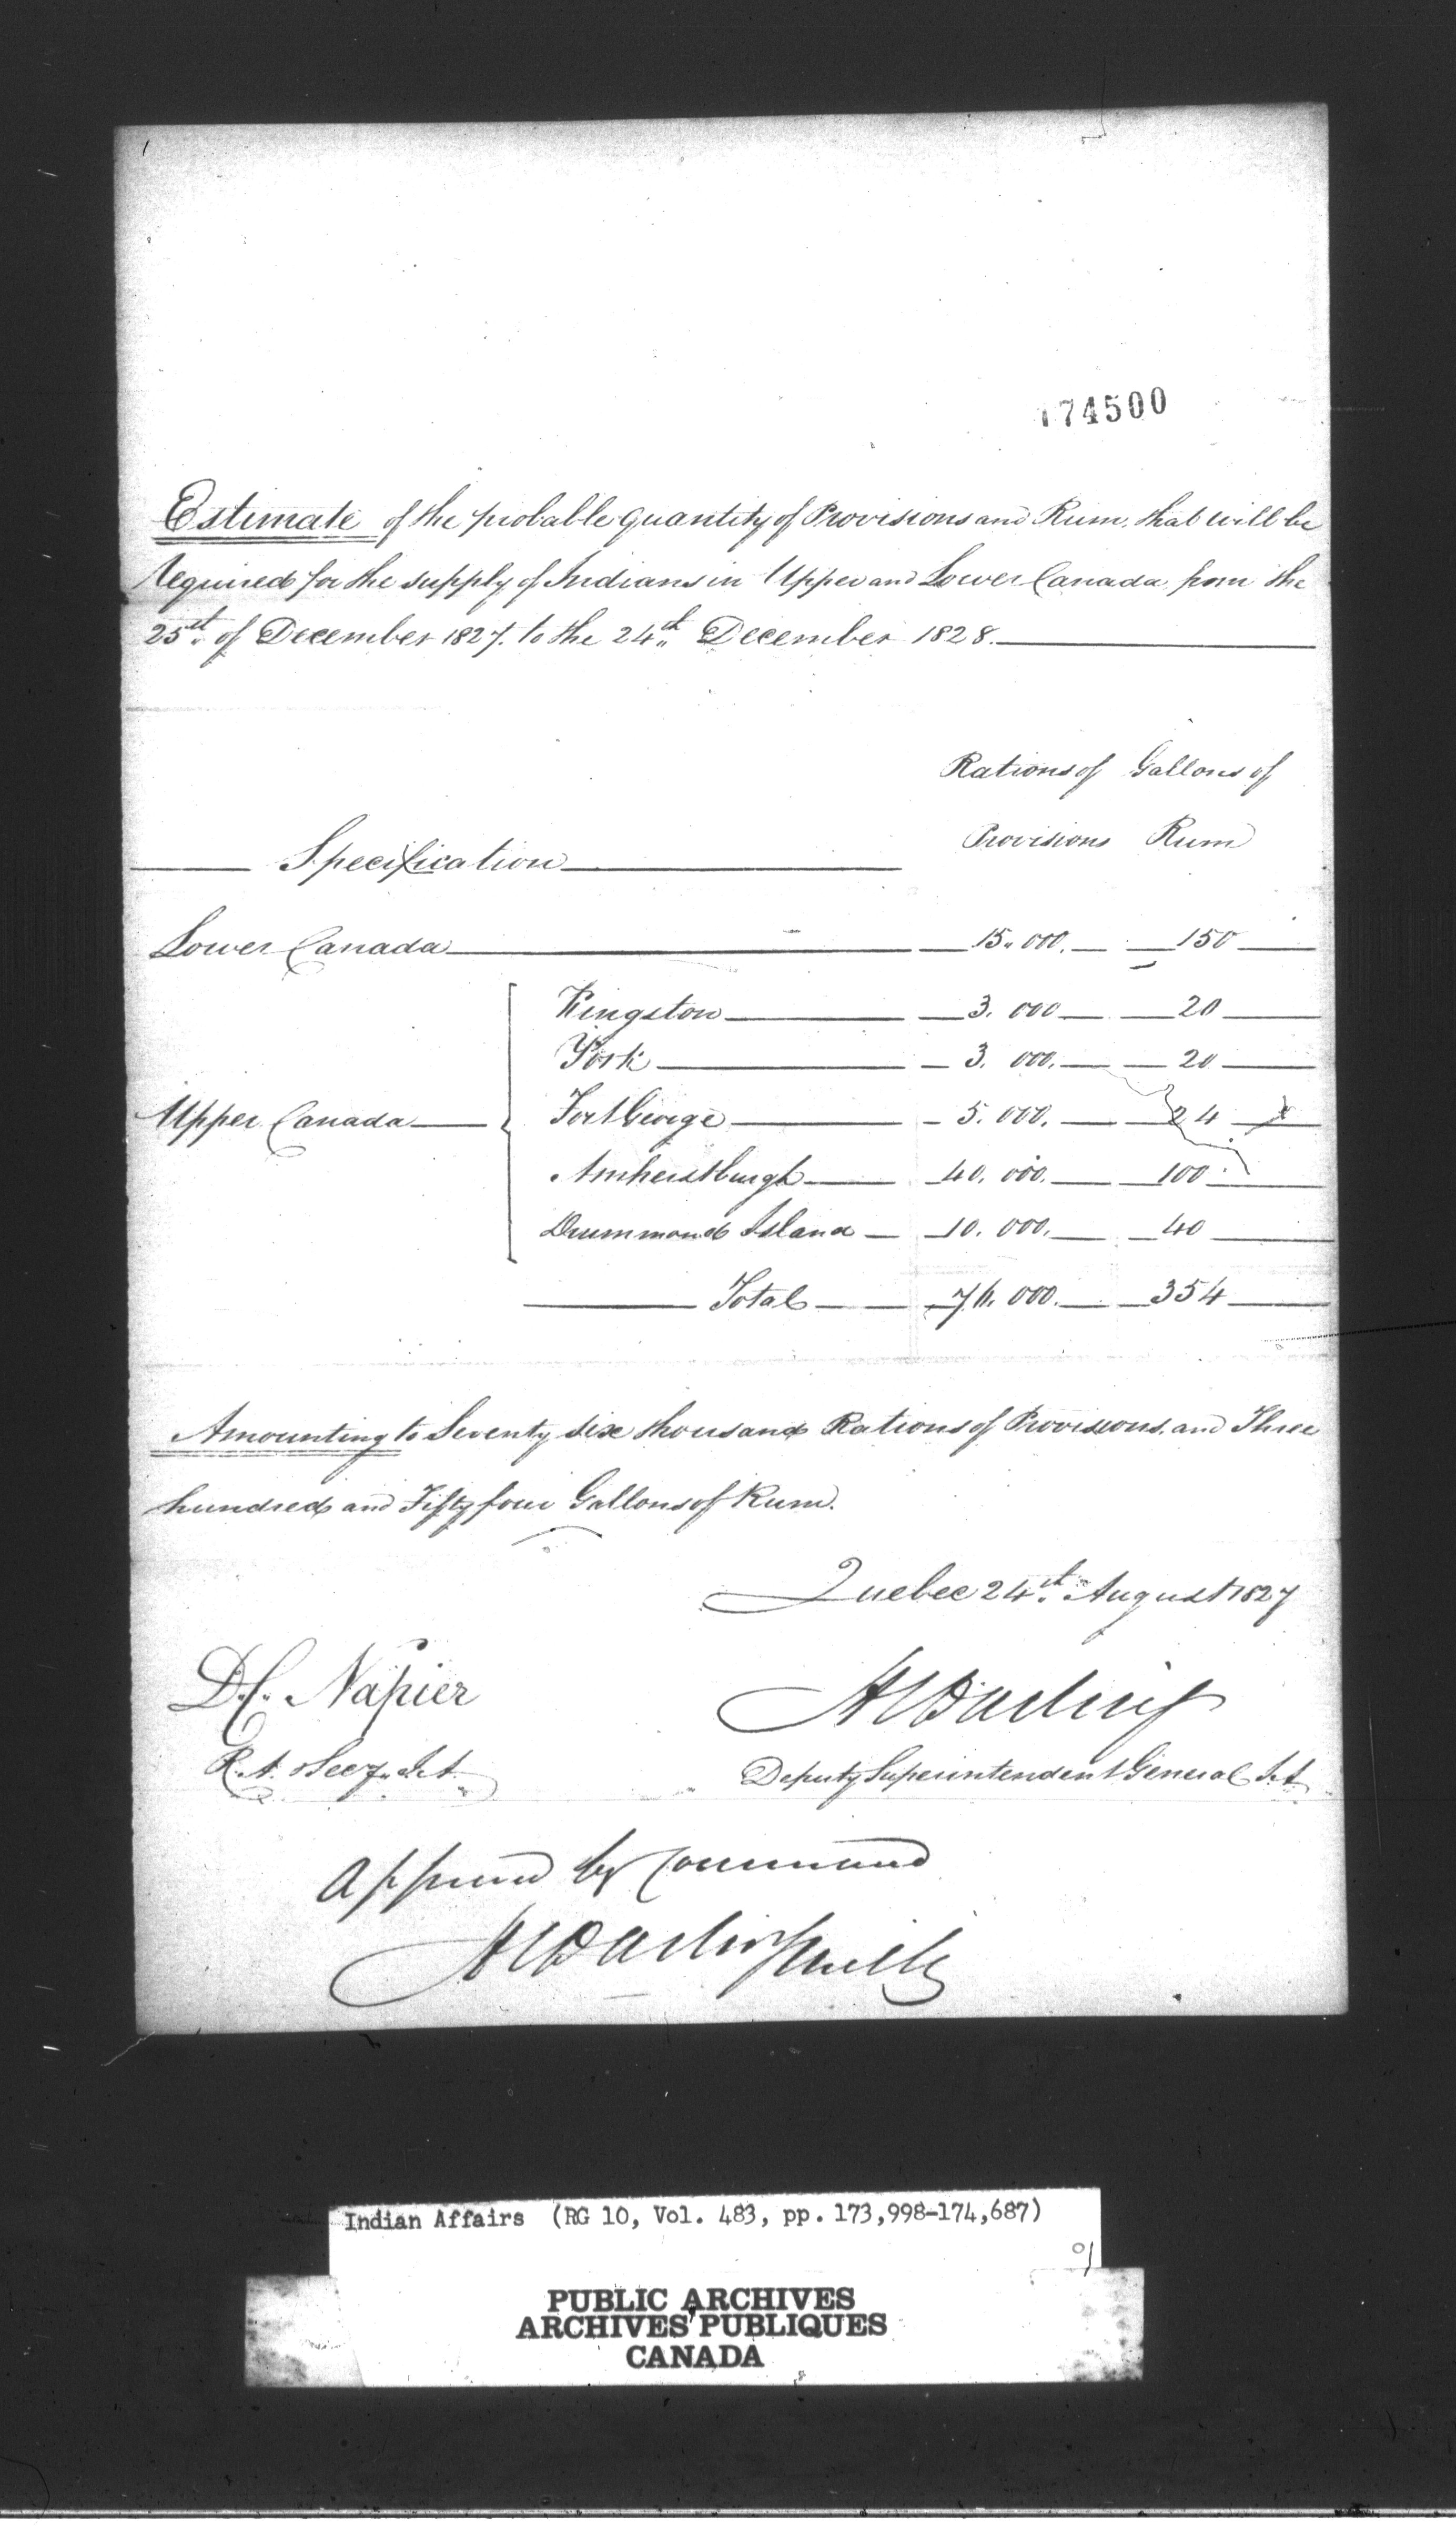 174500
Estimate of the probable quantity of Provisions and Rum, that will be
required for the supply of Indians in Upper and Lower Canada from the
25th of December 1827. to the 24th December 1828.
Rations of Gallons of
Provisions Rum
Specification
Lower Canada 15,000. 150
Kingston 3.000 20
York 3.000. 20
Upper Canada Fort George 5.000. 24
Amherstburgh 40.000. 100
Drummond Island 10.000. 40
Total 76.000. 354
Amounting to Seventy six thousand Rations of Provisions, and Three
hundred and Fifty four Gallons of Rum.
Quebec 24th August 1827
D.C. Napier HC Darling
R.A. Secy. I.A. Deputy Superintendent General I.A
Approved by Command
HC Darling
Indian Affairs (RG 10, Vol. 483, pp. 173,998-174,687)
PUBLIC ARCHIVES
ARCHIVES PUBLIQUES
CANADA